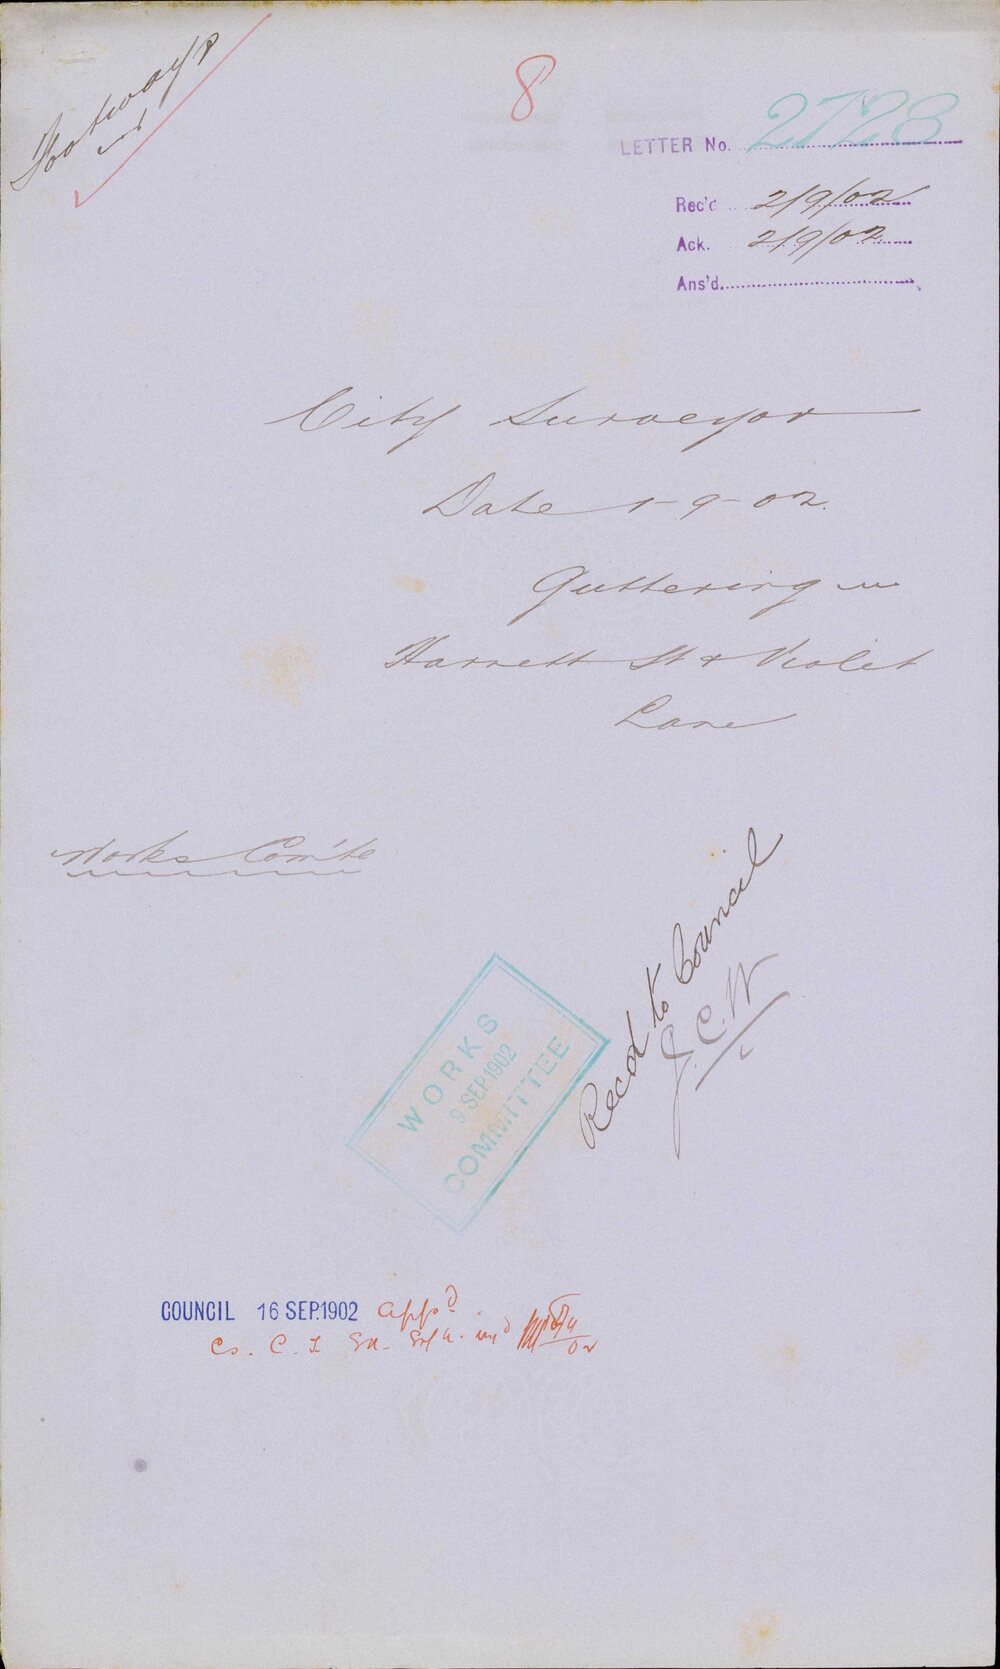 Footways
8
LETTER No. 2728
Rec'd 2/9/02
Ack. 2/9/02
Ans'd
City Surveyor
Date 1-9-02.
Guttering in
Harnett St & Violet
Lane
Works Com'te
Recd to Council
J.C.W
WORKS
9 SEP.1902
COMMITTEE
COUNCIL 16 SEP.1902 appd
Co. C.
02